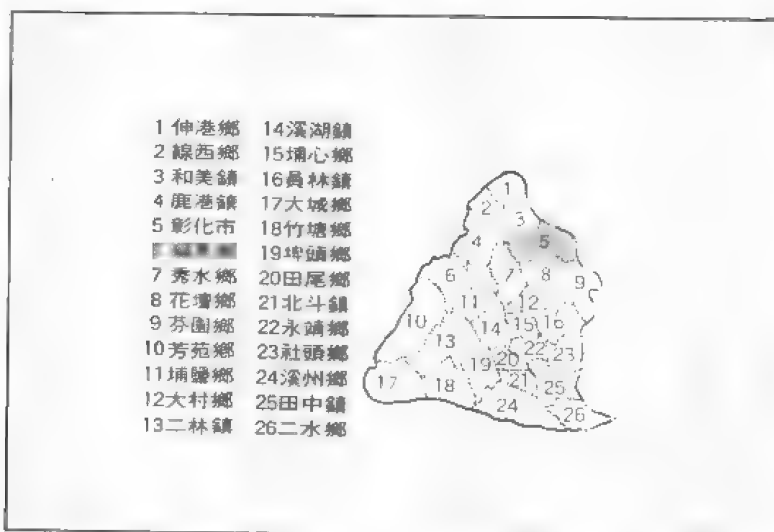 1 伸港鄉
2 線西鄉
3 和美鎮
4 鹿港鎮
5 彰化市
7 秀水鄉
8 花壇鄉
9 芬園鄉
10芳苑鄉
11埔鹽鄉
12大村鄉
13二林鎮
14溪湖鎮
15埔心鄉
16員林鎮
17大城鄉
18竹塘鄉
19埤頭鄉
20田尾鄉
21北斗鎮
22永靖鄉
23社頭鄉
24溪州鄉
25田中鎮
26二水鄉
1
2
3
4
5
6
7
8
9
10
11
12
13
14
15
16
17
18
19
20
22
23
21
25
24
26